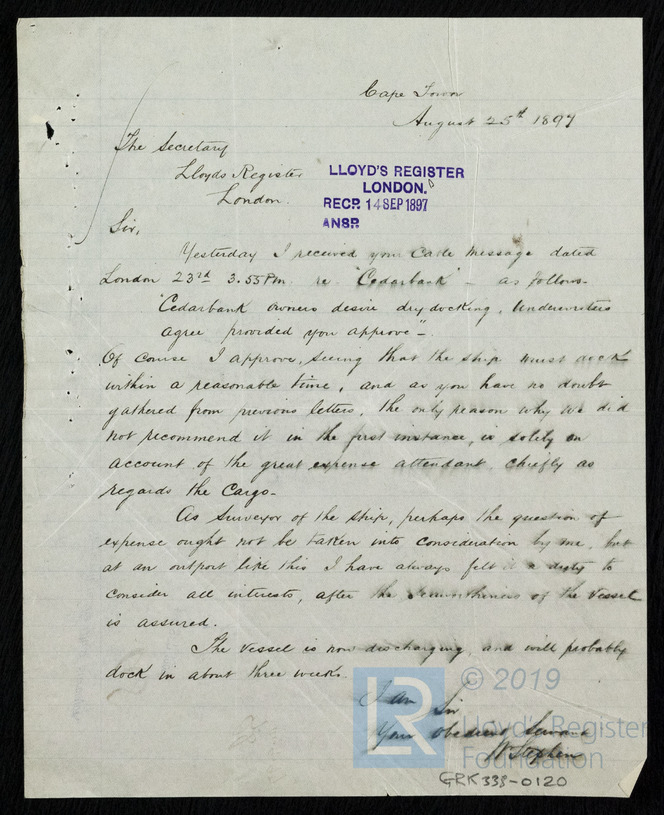 Cape Town
August 25th 1897
The Secretary
Lloyds Register
London.
LLOYD'S REGISTER
LONDON.
RECD. 14 SEP 1897
ANSD.
Sir,
Yesterday I received your Cable Message dated
London 23rd 3.55 Pm. re "Cedarbank" - as follows-
"Cedarbank owners desire drydocking, Underwriters
agree provided you approve".
Of course I approve, seeing that the ship must dock
within a reasonable time, and as you have no doubt
gathered from previous letters, the only reason why we did
not recommend it in the first instance, is solely on
account of the great expense attendant, chiefly as
regards the Cargo-
As Surveyor of the ship, perhaps the question of
expense ought not be taken into consideration by me, but
at an outport like this I have always felt it a duty to
consider all interests, after the seaworthiness of the Vessel
is assured.
The vessel is now discharging, and will probably
dock in about three weeks.
I am Sir
Your obedient Servant
W Stephen
GRK338-0120
© 2019
LR
Lloyd's Register
Foundation